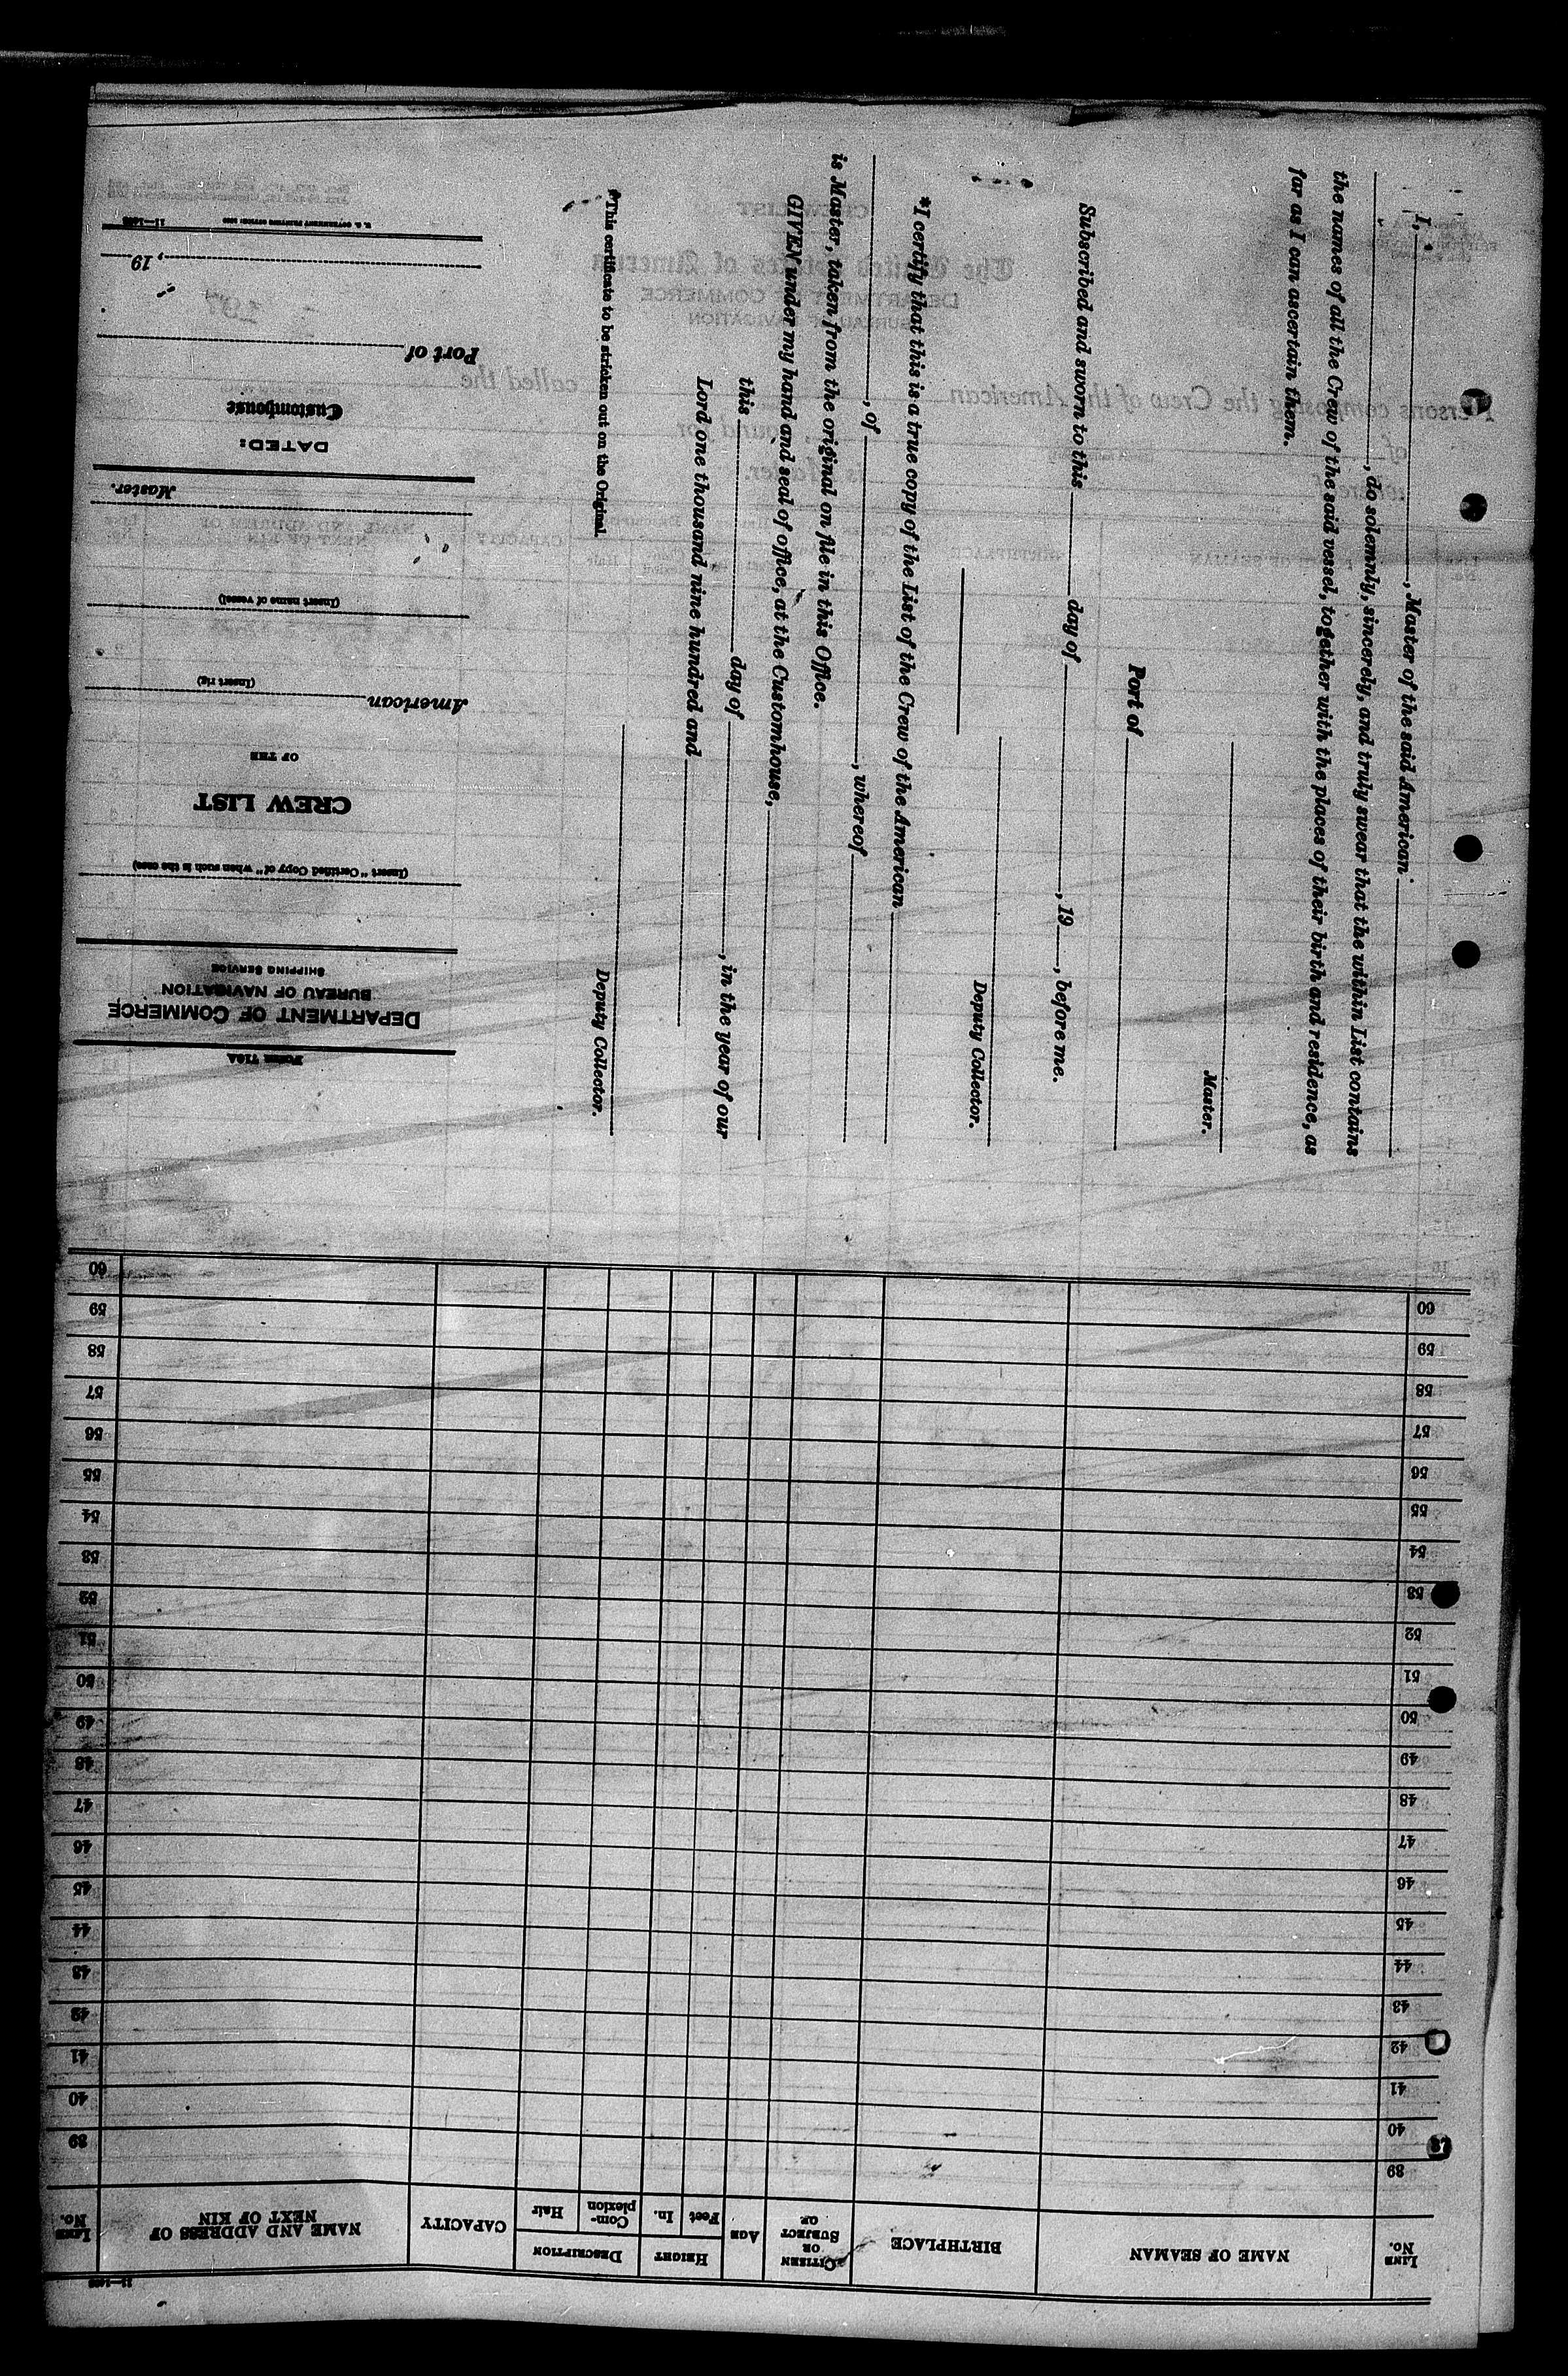 I, , Master of the said American
, do solemnly, sincerely, and truly swear that the within List contains
the names of all the Crew of the said vessel, together with the places of their birth and residence, as
far as I can ascertain them.
Master.
Port of
Subscribed and sworn to this day of , 19 , before me.
Deputy Collector.
*I certify that this is a true copy of the List of the Crew of the American
, of , whereof
is Master, taken from the original on file in this Office.
GIVEN under my hand and seal of office, at the Customhouse,
this day of , in the year of our
Lord one thousand nine hundred and
Deputy Collector.
*This certificate to be stricken out on the Original.
FORM 710A
DEPARTMENT OF COMMERCE
BUREAU OF NAVIGATION
SHIPPING SERVICE
(Insert "Certified Copy of" when such is the case)
CREW LIST
OF THE
American
(Insert rig)
(Insert name of vessel)
Master.
DATED:
Customhouse
Port of
, 19
U. S. GOVERNMENT PRINTING OFFICE
LINE No. NAME OF SEAMAN BIRTHPLACE CITIZEN OR SUBJECT OF AGE HEIGHT Feet In. DESCRIPTION Complexion Hair CAPACITY NAME AND ADDRESS OF NEXT OF KIN LINE No.
39 39
40 40
41 41
42 42
43 43
44 44
45 45
46 46
47 47
48 48
49 49
50 50
51 51
52 52
53 53
54 54
55 55
56 56
57 57
58 58
59 59
60 60